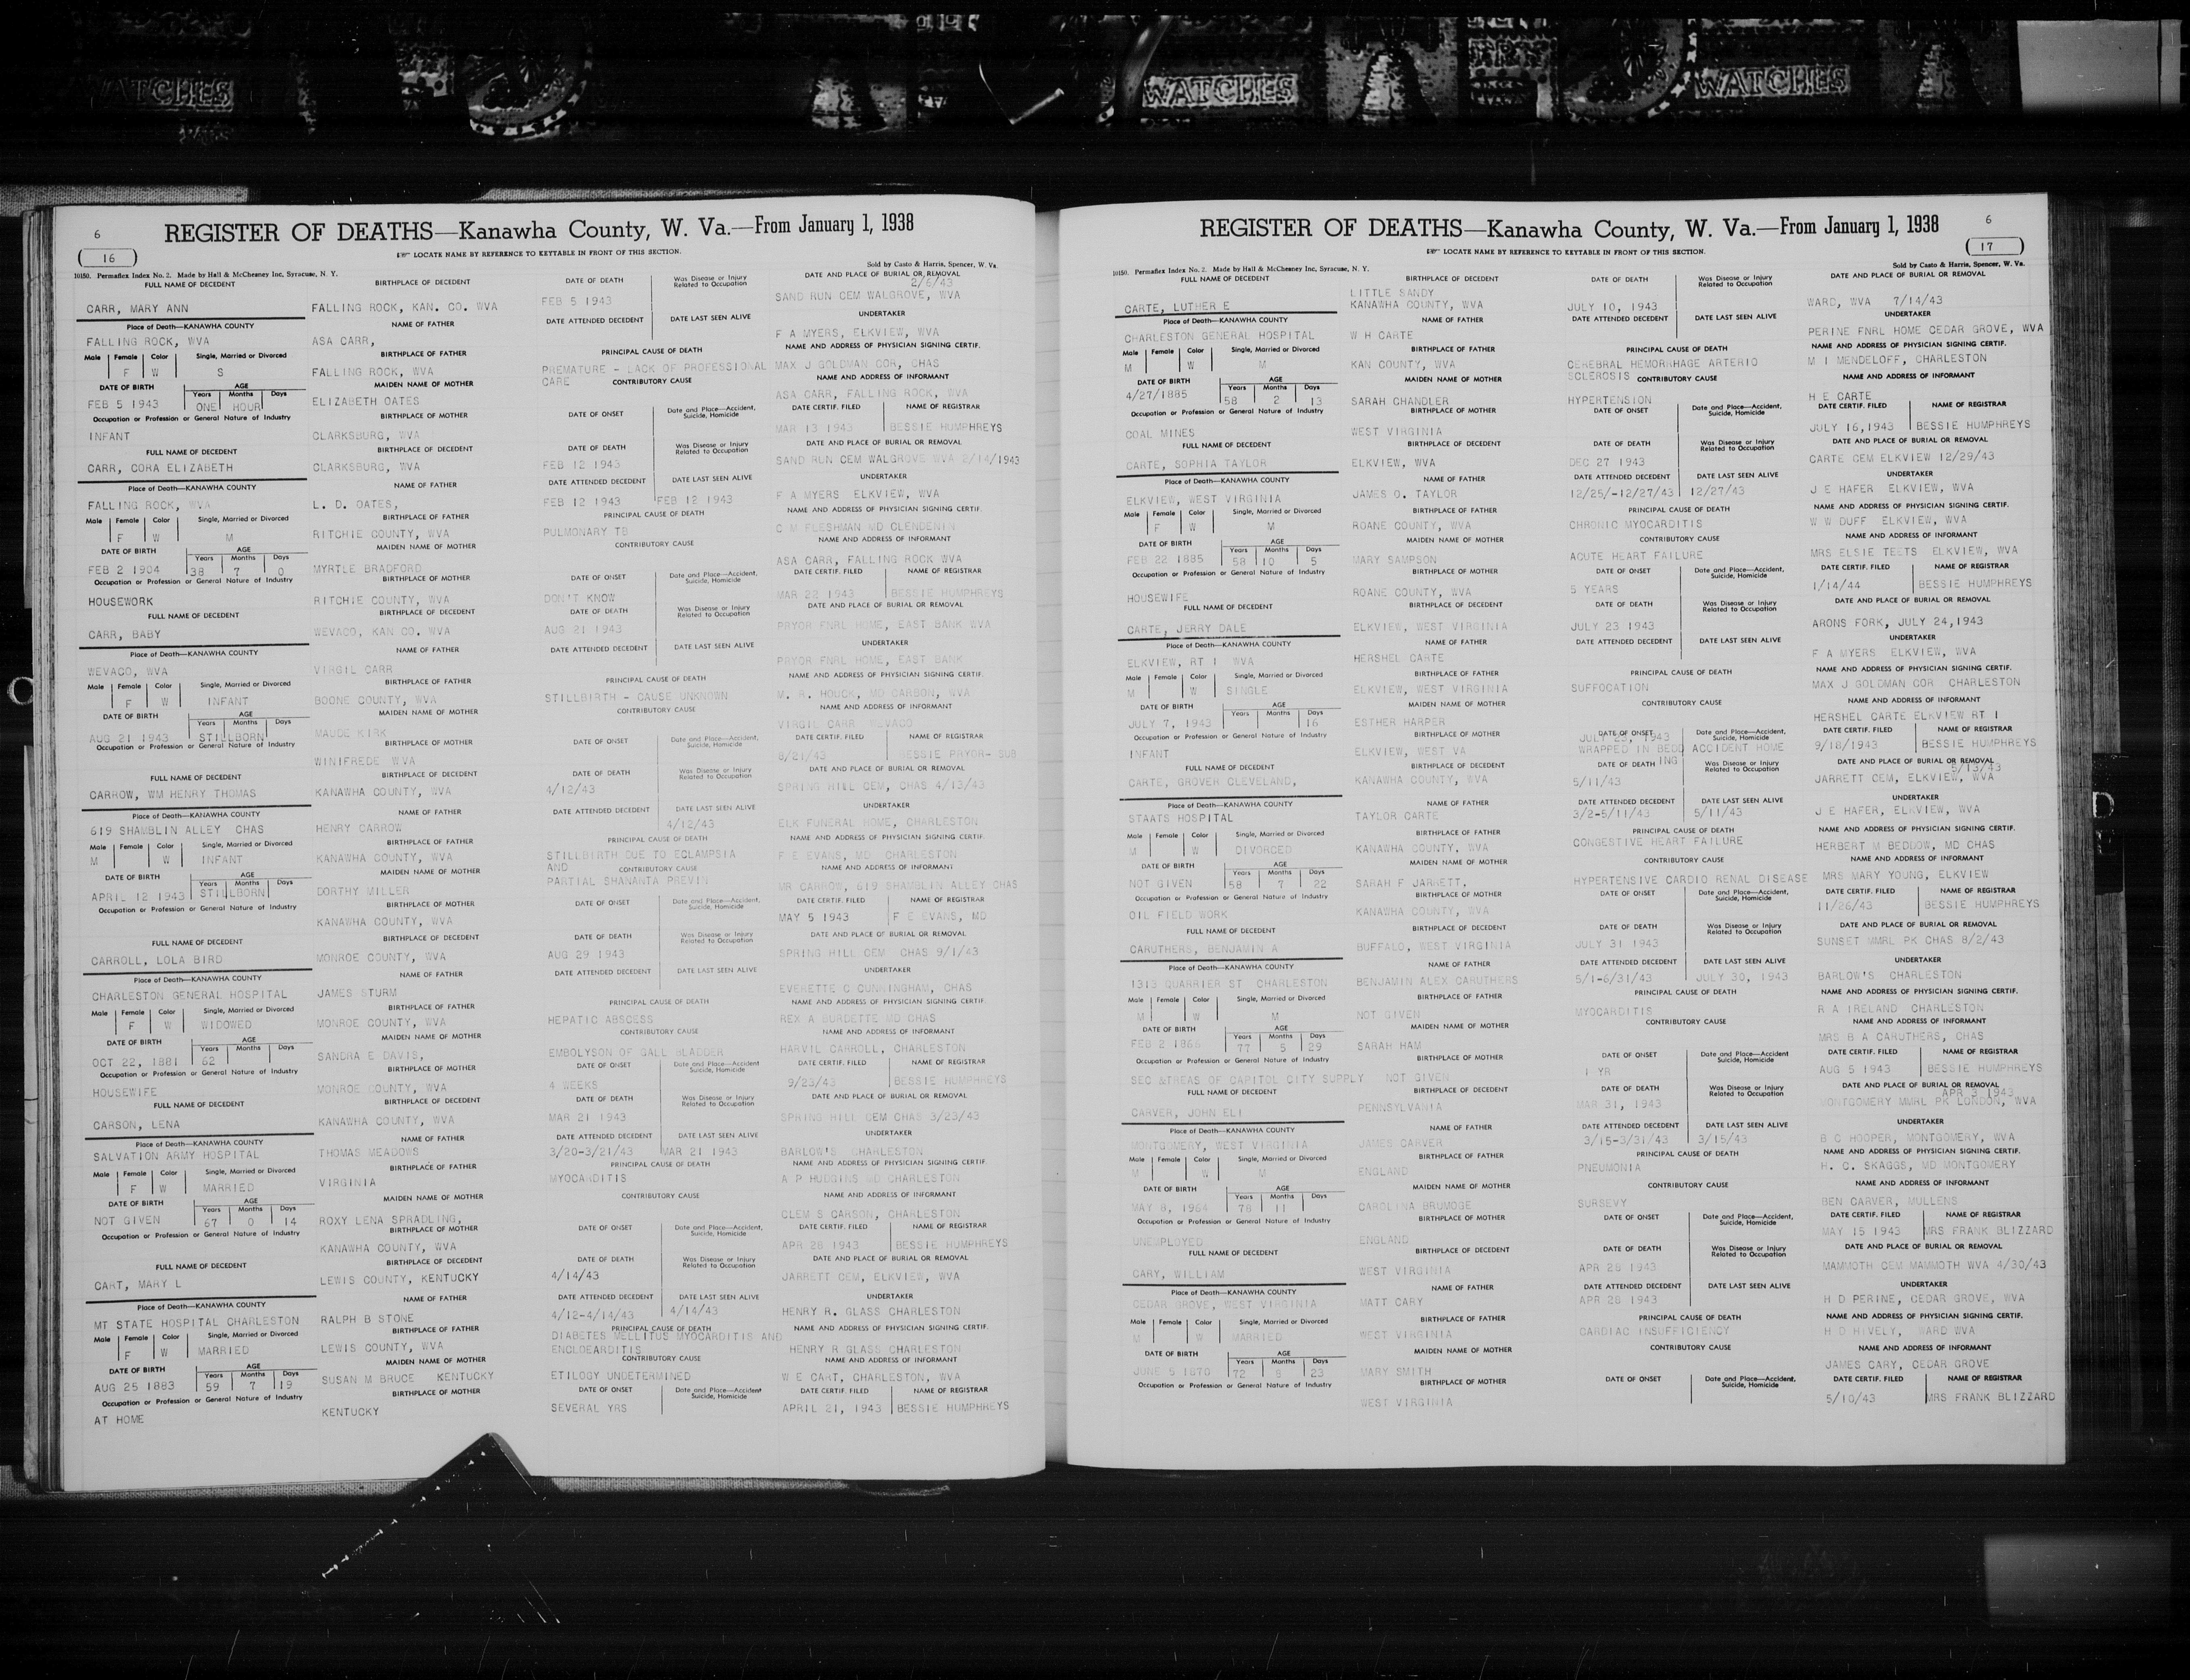 WATCHES
WATCHES
WATCHES
6
16
REGISTER OF DEATHS—Kanawha County, W. Va.—From January 1, 1938
LOCATE NAME BY REFERENCE TO KEYTABLE IN FRONT OF THIS SECTION.
10150. Permaflex Index No. 2. Made by Hall & McChesney Inc, Syracuse, N. Y.
Sold by Casto & Harris, Spencer, W. Va.
FULL NAME OF DECEDENT BIRTHPLACE OF DECEDENT DATE OF DEATH Was Disease or Injury Related to Occupation DATE AND PLACE OF BURIAL OR REMOVAL
2/6/43
CARR, MARY ANN FALLING ROCK, KAN. CO. WVA FEB 5 1943 SAND RUN CEM WALGROVE, WVA
Place of Death—KANAWHA COUNTY NAME OF FATHER DATE ATTENDED DECEDENT DATE LAST SEEN ALIVE UNDERTAKER
FALLING ROCK, WVA ASA CARR, F A MYERS, ELKVIEW, WVA
Male Female Color Single, Married or Divorced BIRTHPLACE OF FATHER PRINCIPAL CAUSE OF DEATH NAME AND ADDRESS OF PHYSICIAN SIGNING CERTIF.
F W S FALLING ROCK, WVA PREMATURE - LACK OF PROFESSIONAL CARE MAX J GOLDMAN COR, CHAS
DATE OF BIRTH AGE Years Months Days MAIDEN NAME OF MOTHER CONTRIBUTORY CAUSE NAME AND ADDRESS OF INFORMANT
FEB 5 1943 ONE HOUR ELIZABETH OATES ASA CARR, FALLING ROCK, WVA
Occupation or Profession or General Nature of Industry BIRTHPLACE OF MOTHER DATE OF ONSET Date and Place—Accident, Suicide, Homicide DATE CERTIF. FILED NAME OF REGISTRAR
INFANT CLARKSBURG, WVA MAR 13 1943 BESSIE HUMPHREYS
FULL NAME OF DECEDENT BIRTHPLACE OF DECEDENT DATE OF DEATH Was Disease or Injury Related to Occupation DATE AND PLACE OF BURIAL OR REMOVAL
CARR, CORA ELIZABETH CLARKSBURG, WVA FEB 12 1943 SAND RUN CEM WALGROVE WVA 2/14/1943
Place of Death—KANAWHA COUNTY NAME OF FATHER DATE ATTENDED DECEDENT DATE LAST SEEN ALIVE UNDERTAKER
FALLING ROCK, WVA L. D. OATES, FEB 12 1943 FEB 12 1943 F A MYERS ELKVIEW, WVA
Male Female Color Single, Married or Divorced BIRTHPLACE OF FATHER PRINCIPAL CAUSE OF DEATH NAME AND ADDRESS OF PHYSICIAN SIGNING CERTIF.
F W M RITCHIE COUNTY, WVA PULMONARY TB C M FLESHMAN MD CLENDENIN
DATE OF BIRTH AGE Years Months Days MAIDEN NAME OF MOTHER CONTRIBUTORY CAUSE NAME AND ADDRESS OF INFORMANT
FEB 2 1904 38 7 0 MYRTLE BRADFORD ASA CARR, FALLING ROCK WVA
Occupation or Profession or General Nature of Industry BIRTHPLACE OF MOTHER DATE OF ONSET Date and Place—Accident, Suicide, Homicide DATE CERTIF. FILED NAME OF REGISTRAR
HOUSEWORK RITCHIE COUNTY, WVA DON'T KNOW MAR 22 1943 BESSIE HUMPHREYS
FULL NAME OF DECEDENT BIRTHPLACE OF DECEDENT DATE OF DEATH Was Disease or Injury Related to Occupation DATE AND PLACE OF BURIAL OR REMOVAL
CARR, BABY WEVACO, KAN CO. WVA AUG 21 1943 PRYOR FNRL HOME, EAST BANK WVA
Place of Death—KANAWHA COUNTY NAME OF FATHER DATE ATTENDED DECEDENT DATE LAST SEEN ALIVE UNDERTAKER
WEVACO, WVA VIRGIL CARR PRYOR FNRL HOME, EAST BANK
Male Female Color Single, Married or Divorced BIRTHPLACE OF FATHER PRINCIPAL CAUSE OF DEATH NAME AND ADDRESS OF PHYSICIAN SIGNING CERTIF.
F W INFANT BOONE COUNTY, WVA STILLBIRTH - CAUSE UNKNOWN M. R. HOUCK, MD CARSON, WVA
DATE OF BIRTH AGE Years Months Days MAIDEN NAME OF MOTHER CONTRIBUTORY CAUSE NAME AND ADDRESS OF INFORMANT
AUG 21 1943 STILLBORN MAUDE KIRK VIRGIL CARR WEVACO
Occupation or Profession or General Nature of Industry BIRTHPLACE OF MOTHER DATE OF ONSET Date and Place—Accident, Suicide, Homicide DATE CERTIF. FILED NAME OF REGISTRAR
WINIFREDE WVA 8/21/43 BESSIE PRYOR- SUB
FULL NAME OF DECEDENT BIRTHPLACE OF DECEDENT DATE OF DEATH Was Disease or Injury Related to Occupation DATE AND PLACE OF BURIAL OR REMOVAL
CARROW, WM HENRY THOMAS KANAWHA COUNTY, WVA 4/12/43 SPRING HILL CEM, CHAS 4/13/43
Place of Death—KANAWHA COUNTY NAME OF FATHER DATE ATTENDED DECEDENT DATE LAST SEEN ALIVE UNDERTAKER
619 SHAMBLIN ALLEY CHAS HENRY CARROW 4/12/43 ELK FUNERAL HOME, CHARLESTON
Male Female Color Single, Married or Divorced BIRTHPLACE OF FATHER PRINCIPAL CAUSE OF DEATH NAME AND ADDRESS OF PHYSICIAN SIGNING CERTIF.
M W INFANT KANAWHA COUNTY, WVA STILLBIRTH DUE TO ECLAMPSIA AND F E EVANS, MD CHARLESTON
DATE OF BIRTH AGE Years Months Days MAIDEN NAME OF MOTHER CONTRIBUTORY CAUSE NAME AND ADDRESS OF INFORMANT
APRIL 12 1943 STILLBORN DORTHY MILLER PARTIAL SHANANTA PREVIN MR CARROW, 619 SHAMBLIN ALLEY CHAS
Occupation or Profession or General Nature of Industry BIRTHPLACE OF MOTHER DATE OF ONSET Date and Place—Accident, Suicide, Homicide DATE CERTIF. FILED NAME OF REGISTRAR
KANAWHA COUNTY, WVA MAY 5 1943 F E EVANS, MD
FULL NAME OF DECEDENT BIRTHPLACE OF DECEDENT DATE OF DEATH Was Disease or Injury Related to Occupation DATE AND PLACE OF BURIAL OR REMOVAL
CARROLL, LOLA BIRD MONROE COUNTY, WVA AUG 29 1943 SPRING HILL CEM CHAS 9/1/43
Place of Death—KANAWHA COUNTY NAME OF FATHER DATE ATTENDED DECEDENT DATE LAST SEEN ALIVE UNDERTAKER
CHARLESTON GENERAL HOSPITAL JAMES STURM EVERETTE C CUNNINGHAM, CHAS
Male Female Color Single, Married or Divorced BIRTHPLACE OF FATHER PRINCIPAL CAUSE OF DEATH NAME AND ADDRESS OF PHYSICIAN SIGNING CERTIF.
F W WIDOWED MONROE COUNTY, WVA HEPATIC ABSCESS REX A BURDETTE MD CHAS
DATE OF BIRTH AGE Years Months Days MAIDEN NAME OF MOTHER CONTRIBUTORY CAUSE NAME AND ADDRESS OF INFORMANT
OCT 22, 1881 62 SANDRA E DAVIS, EMBOLYSON OF GALL BLADDER HARVIL CARROLL, CHARLESTON
Occupation or Profession or General Nature of Industry BIRTHPLACE OF MOTHER DATE OF ONSET Date and Place—Accident Suicide, Homicide DATE CERTIF. FILED NAME OF REGISTRAR
HOUSEWIFE MONROE COUNTY, WVA 4 WEEKS 9/23/43 BESSIE HUMPHREYS
FULL NAME OF DECEDENT BIRTHPLACE OF DECEDENT DATE OF DEATH Was Disease or Injury Related to Occupation DATE AND PLACE OF BURIAL OR REMOVAL
CARSON, LENA KANAWHA COUNTY, WVA MAR 21 1943 SPRING HILL CEM CHAS 3/23/43
Place of Death—KANAWHA COUNTY NAME OF FATHER DATE ATTENDED DECEDENT DATE LAST SEEN ALIVE UNDERTAKER
SALVATION ARMY HOSPITAL THOMAS MEADOWS 3/20-3/21/43 MAR 21 1943 BARLOW'S CHARLESTON
Male Female Color Single, Married or Divorced BIRTHPLACE OF FATHER PRINCIPAL CAUSE OF DEATH NAME AND ADDRESS OF PHYSICIAN SIGNING CERTIF.
F W MARRIED VIRGINIA MYOCARDITIS A P HUDGINS MD CHARLESTON
DATE OF BIRTH AGE Years Months Days MAIDEN NAME OF MOTHER CONTRIBUTORY CAUSE NAME AND ADDRESS OF INFORMANT
NOT GIVEN 67 0 14 ROXY LENA SPRADLING, CLEM S CARSON, CHARLESTON
Occupation or Profession or General Nature of Industry BIRTHPLACE OF MOTHER DATE OF ONSET Date and Place—Accident, Suicide, Homicide DATE CERTIF. FILED NAME OF REGISTRAR
KANAWHA COUNTY, WVA APR 28 1943 BESSIE HUMPHREYS
FULL NAME OF DECEDENT BIRTHPLACE OF DECEDENT DATE OF DEATH Was Disease or Injury Related to Occupation DATE AND PLACE OF BURIAL OR REMOVAL
CART, MARY L LEWIS COUNTY, KENTUCKY 4/14/43 JARRETT CEM, ELKVIEW, WVA
Place of Death—KANAWHA COUNTY NAME OF FATHER DATE ATTENDED DECEDENT DATE LAST SEEN ALIVE UNDERTAKER
MT STATE HOSPITAL CHARLESTON RALPH B STONE 4/12-4/14/43 4/14/43 HENRY R. GLASS CHARLESTON
Male Female Color Single, Married or Divorced BIRTHPLACE OF FATHER PRINCIPAL CAUSE OF DEATH NAME AND ADDRESS OF PHYSICIAN SIGNING CERTIF.
F W MARRIED LEWIS COUNTY, WVA DIABETES MELLITUS MYOCARDITIS AND ENCLDEARDITIS HENRY R GLASS CHARLESTON
DATE OF BIRTH AGE Years Months Days MAIDEN NAME OF MOTHER CONTRIBUTORY CAUSE NAME AND ADDRESS OF INFORMANT
AUG 25 1883 59 7 19 SUSAN M BRUCE KENTUCKY ETILOGY UNDETERMINED W E CART, CHARLESTON, WVA
Occupation or Profession or General Nature of Industry BIRTHPLACE OF MOTHER DATE OF ONSET Date and Place—Accident Suicide, Homicide DATE CERTIF. FILED NAME OF REGISTRAR
AT HOME KENTUCKY SEVERAL YRS APRIL 21, 1943 BESSIE HUMPHREYS
6
17
REGISTER OF DEATHS—Kanawha County, W. Va.—From January 1, 1938
LOCATE NAME BY REFERENCE TO KEYTABLE IN FRONT OF THIS SECTION.
10150. Permaflex Index No. 2. Made by Hall & McChesney Inc, Syracuse, N. Y.
Sold by Casto & Harris, Spencer, W. Va.
FULL NAME OF DECEDENT BIRTHPLACE OF DECEDENT DATE OF DEATH Was Disease or Injury Related to Occupation DATE AND PLACE OF BURIAL OR REMOVAL
LITTLE SANDY
CARTE, LUTHER E KANAWHA COUNTY, WVA JULY 10, 1943 WARD, WVA 7/14/43
Place of Death—KANAWHA COUNTY NAME OF FATHER DATE ATTENDED DECEDENT DATE LAST SEEN ALIVE UNDERTAKER
CHARLESTON GENERAL HOSPITAL W H CARTE PERINE FNRL HOME CEDAR GROVE, WVA
Male Female Color Single, Married or Divorced BIRTHPLACE OF FATHER PRINCIPAL CAUSE OF DEATH NAME AND ADDRESS OF PHYSICIAN SIGNING CERTIF.
M W M KAN COUNTY, WVA CEREBRAL HEMORRHAGE ARTERIO SCLEROSIS M I MENDELOFF, CHARLESTON
DATE OF BIRTH AGE Years Months Days MAIDEN NAME OF MOTHER CONTRIBUTORY CAUSE NAME AND ADDRESS OF INFORMANT
4/27/1885 58 2 13 SARAH CHANDLER HYPERTENSION H E CARTE
Occupation or Profession or General Nature of Industry BIRTHPLACE OF MOTHER DATE OF ONSET Date and Place—Accident, Suicide, Homicide DATE CERTIF. FILED NAME OF REGISTRAR
COAL MINES WEST VIRGINIA JULY 16,1943 BESSIE HUMPHREYS
FULL NAME OF DECEDENT BIRTHPLACE OF DECEDENT DATE OF DEATH Was Disease or Injury Related to Occupation DATE AND PLACE OF BURIAL OR REMOVAL
CARTE, SOPHIA TAYLOR ELKVIEW, WVA DEC 27 1943 CARTE CEM ELKVIEW 12/29/43
Place of Death—KANAWHA COUNTY NAME OF FATHER DATE ATTENDED DECEDENT DATE LAST SEEN ALIVE UNDERTAKER
ELKVIEW, WEST VIRGINIA JAMES O. TAYLOR 12/25/-12/27/43 12/27/43 J E HAFER ELKVIEW, WVA
Male Female Color Single, Married or Divorced BIRTHPLACE OF FATHER PRINCIPAL CAUSE OF DEATH NAME AND ADDRESS OF PHYSICIAN SIGNING CERTIF.
F W M ROANE COUNTY, WVA CHRONIC MYOCARDITIS W W DUFF ELKVIEW, WVA
DATE OF BIRTH AGE Years Months Days MAIDEN NAME OF MOTHER CONTRIBUTORY CAUSE NAME AND ADDRESS OF INFORMANT
FEB 22 1885 58 10 5 MARY SAMPSON ACUTE HEART FAILURE MRS ELSIE TEETS ELKVIEW, WVA
Occupation or Profession or General Nature of Industry BIRTHPLACE OF MOTHER DATE OF ONSET Date and Place—Accident, Suicide, Homicide DATE CERTIF. FILED NAME OF REGISTRAR
HOUSEWIFE ROANE COUNTY, WVA 5 YEARS 1/14/44 BESSIE HUMPHREYS
FULL NAME OF DECEDENT BIRTHPLACE OF DECEDENT DATE OF DEATH Was Disease or Injury Related to Occupation DATE AND PLACE OF BURIAL OR REMOVAL
CARTE, JERRY DALE ELKVIEW, WEST VIRGINIA JULY 23 1943 ARONS FORK, JULY 24,1943
Place of Death—KANAWHA COUNTY NAME OF FATHER DATE ATTENDED DECEDENT DATE LAST SEEN ALIVE UNDERTAKER
ELKVIEW, RT 1 WVA HERSHEL CARTE F A MYERS ELKVIEW, WVA
Male Female Color Single, Married or Divorced BIRTHPLACE OF FATHER PRINCIPAL CAUSE OF DEATH NAME AND ADDRESS OF PHYSICIAN SIGNING CERTIF.
M W SINGLE ELKVIEW, WEST VIRGINIA SUFFOCATION MAX J GOLDMAN COR CHARLESTON
DATE OF BIRTH AGE Years Months Days MAIDEN NAME OF MOTHER CONTRIBUTORY CAUSE NAME AND ADDRESS OF INFORMANT
JULY 7, 1943 16 ESTHER HARPER HERSHEL CARTE ELKVIEW RT 1
Occupation or Profession or General Nature of Industry BIRTHPLACE OF MOTHER DATE OF ONSET Date and Place—Accident, Suicide, Homicide DATE CERTIF. FILED NAME OF REGISTRAR
INFANT ELKVIEW, WEST VA JULY 23, 1943 WRAPPED IN BEDDING ACCIDENT HOME 9/18/1943 BESSIE HUMPHREYS
FULL NAME OF DECEDENT BIRTHPLACE OF DECEDENT DATE OF DEATH Was Disease or Injury Related to Occupation DATE AND PLACE OF BURIAL OR REMOVAL
5/13/43
CARTE, GROVER CLEVELAND, KANAWHA COUNTY, WVA 5/11/43 JARRETT CEM, ELKVIEW, WVA
Place of Death—KANAWHA COUNTY NAME OF FATHER DATE ATTENDED DECEDENT DATE LAST SEEN ALIVE UNDERTAKER
STAATS HOSPITAL TAYLOR CARTE 3/2-5/11/43 5/11/43 J E HAFER, ELKVIEW, WVA
Male Female Color Single, Married or Divorced BIRTHPLACE OF FATHER PRINCIPAL CAUSE OF DEATH NAME AND ADDRESS OF PHYSICIAN SIGNING CERTIF.
M W DIVORCED KANAWHA COUNTY, WVA CONGESTIVE HEART FAILURE HERBERT M BEDDOW, MD CHAS
DATE OF BIRTH AGE Years Months Days MAIDEN NAME OF MOTHER CONTRIBUTORY CAUSE NAME AND ADDRESS OF INFORMANT
NOT GIVEN 58 7 22 SARAH F JARRETT, HYPERTENSIVE CARDIO RENAL DISEASE MRS MARY YOUNG, ELKVIEW
Occupation or Profession or General Nature of Industry BIRTHPLACE OF MOTHER DATE OF ONSET Date and Place—Accident, Suicide, Homicide DATE CERTIF. FILED NAME OF REGISTRAR
OIL FIELD WORK KANAWHA COUNTY, WVA 11/26/43 BESSIE HUMPHREYS
FULL NAME OF DECEDENT BIRTHPLACE OF DECEDENT DATE OF DEATH Was Disease or Injury Related to Occupation DATE AND PLACE OF BURIAL OR REMOVAL
CARUTHERS, BENJAMIN A BUFFALO, WEST VIRGINIA JULY 31 1943 SUNSET MMRL PK CHAS 8/2/43
Place of Death—KANAWHA COUNTY NAME OF FATHER DATE ATTENDED DECEDENT DATE LAST SEEN ALIVE UNDERTAKER
1313 QUARRIER ST CHARLESTON BENJAMIN ALEX CARUTHERS 5/1-6/31/43 JULY 30, 1943 BARLOW'S CHARLESTON
Male Female Color Single, Married or Divorced BIRTHPLACE OF FATHER PRINCIPAL CAUSE OF DEATH NAME AND ADDRESS OF PHYSICIAN SIGNING CERTIF.
M W M NOT GIVEN MYOCARDITIS R A IRELAND CHARLESTON
DATE OF BIRTH AGE Years Months Days MAIDEN NAME OF MOTHER CONTRIBUTORY CAUSE NAME AND ADDRESS OF INFORMANT
FEB 2 1866 77 5 29 SARAH HAM MRS B A CARUTHERS, CHAS
Occupation or Profession or General Nature of Industry BIRTHPLACE OF MOTHER DATE OF ONSET Date and Place—Accident Suicide, Homicide DATE CERTIF. FILED NAME OF REGISTRAR
SEC &TREAS OF CAPITOL CITY SUPPLY NOT GIVEN 1 YR AUG 5 1943 BESSIE HUMPHREYS
FULL NAME OF DECEDENT BIRTHPLACE OF DECEDENT DATE OF DEATH Was Disease or Injury Related to Occupation DATE AND PLACE OF BURIAL OR REMOVAL
APR 3 1943
CARVER, JOHN ELI PENNSYLVANIA MAR 31, 1943 MONTGOMERY MMRL PK LONDON, WVA
Place of Death—KANAWHA COUNTY NAME OF FATHER DATE ATTENDED DECEDENT DATE LAST SEEN ALIVE UNDERTAKER
MONTGOMERY, WEST VIRGINIA JAMES CARVER 3/15-3/31/43 3/15/43 B C HOOPER, MONTGOMERY, WVA
Male Female Color Single, Married or Divorced BIRTHPLACE OF FATHER PRINCIPAL CAUSE OF DEATH NAME AND ADDRESS OF PHYSICIAN SIGNING CERTIF.
M W M ENGLAND PNEUMONIA H. C. SKAGGS, MD MONTGOMERY
DATE OF BIRTH AGE Years Months Days MAIDEN NAME OF MOTHER CONTRIBUTORY CAUSE NAME AND ADDRESS OF INFORMANT
MAY 8, 1964 78 11 CAROLINA BRUMDGE SURSEVY BEN CARVER, MULLENS
Occupation or Profession or General Nature of Industry BIRTHPLACE OF MOTHER DATE OF ONSET Date and Place—Accident, Suicide, Homicide DATE CERTIF. FILED NAME OF REGISTRAR
UNEMPLOYED ENGLAND MAY 15 1943 MRS FRANK BLIZZARD
FULL NAME OF DECEDENT BIRTHPLACE OF DECEDENT DATE OF DEATH Was Disease or Injury Related to Occupation DATE AND PLACE OF BURIAL OR REMOVAL
CARY, WILLIAM WEST VIRGINIA APR 28 1943 MAMMOTH CEM MAMMOTH WVA 4/30/43
Place of Death—KANAWHA COUNTY NAME OF FATHER DATE ATTENDED DECEDENT DATE LAST SEEN ALIVE UNDERTAKER
CEDAR GROVE, WEST VIRGINIA MATT CARY APR 28 1943 H D PERINE, CEDAR GROVE, WVA
Male Female Color Single, Married or Divorced BIRTHPLACE OF FATHER PRINCIPAL CAUSE OF DEATH NAME AND ADDRESS OF PHYSICIAN SIGNING CERTIF.
M W MARRIED WEST VIRGINIA CARDIAC INSUFFICIENCY H D HIVELY, WARD WVA
DATE OF BIRTH AGE Years Months Days MAIDEN NAME OF MOTHER CONTRIBUTORY CAUSE NAME AND ADDRESS OF INFORMANT
JUNE 5 1870 72 8 23 MARY SMITH JAMES CARY, CEDAR GROVE
Occupation or Profession or General Nature of Industry BIRTHPLACE OF MOTHER DATE OF ONSET Date and Place—Accident, Suicide, Homicide DATE CERTIF. FILED NAME OF REGISTRAR
WEST VIRGINIA 5/10/43 MRS FRANK BLIZZARD